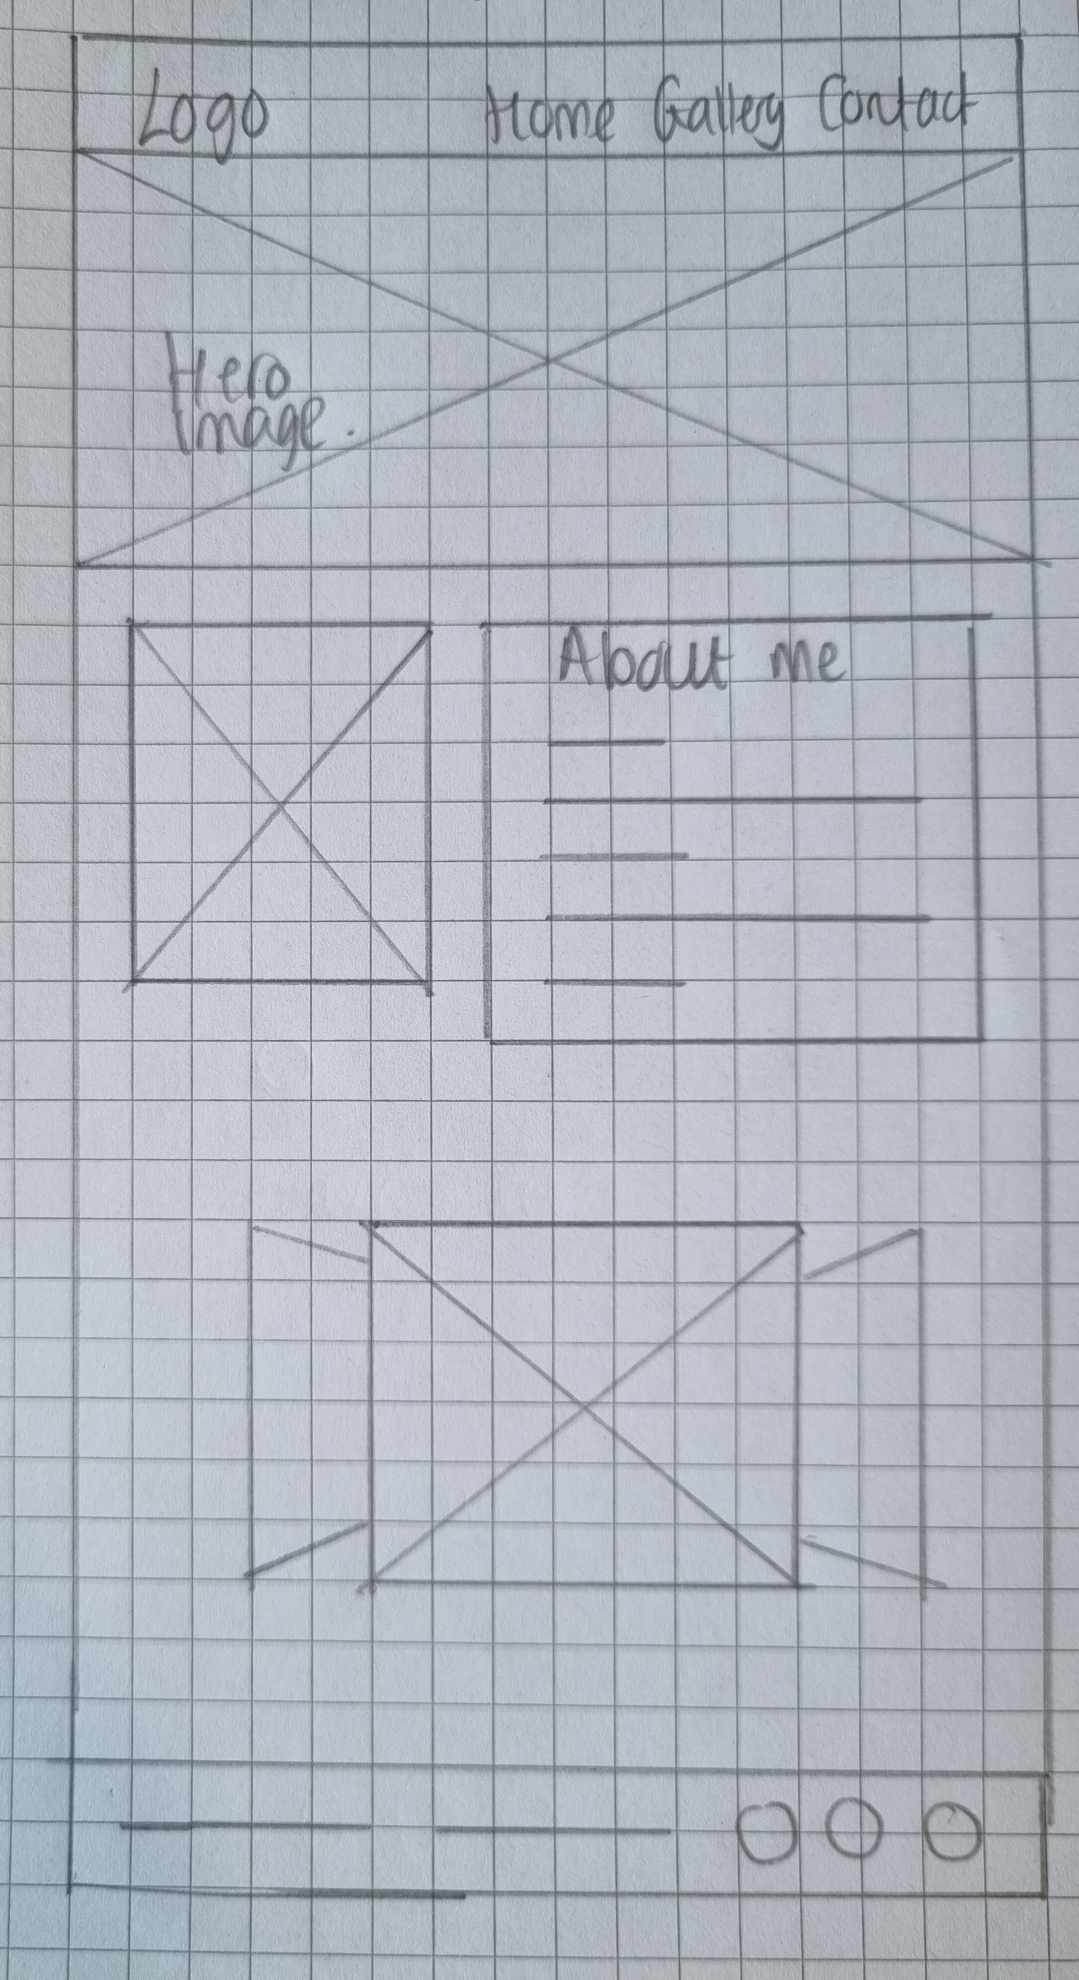 Logo Home Gallery Contact
Hero
Image.
About me